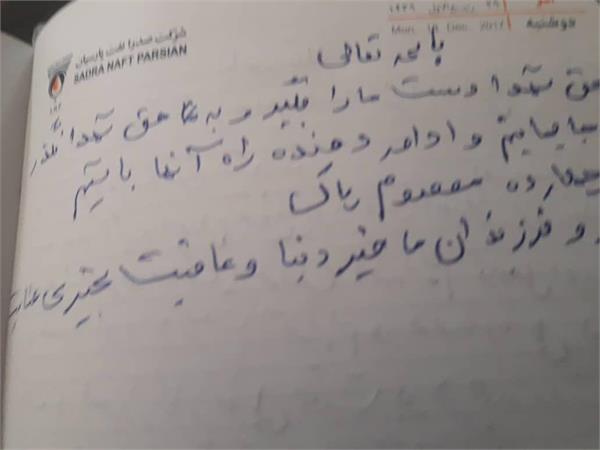 شرکت صدرا نفت پارسیان
SADRA NAFT PARSIAN
۱۴۳۹
Mon, 18 Dec. 2017
دوشنبه
باسمه تعالی
حق شهدا دست ما را بگیر و به ما حق شهدا نگذر
بیاییم و ادامه دهنده راه آنها باشیم
چهارده معصوم پاک
و فرزندان ما خیر دنیا و عاقبت بخیری عنایت